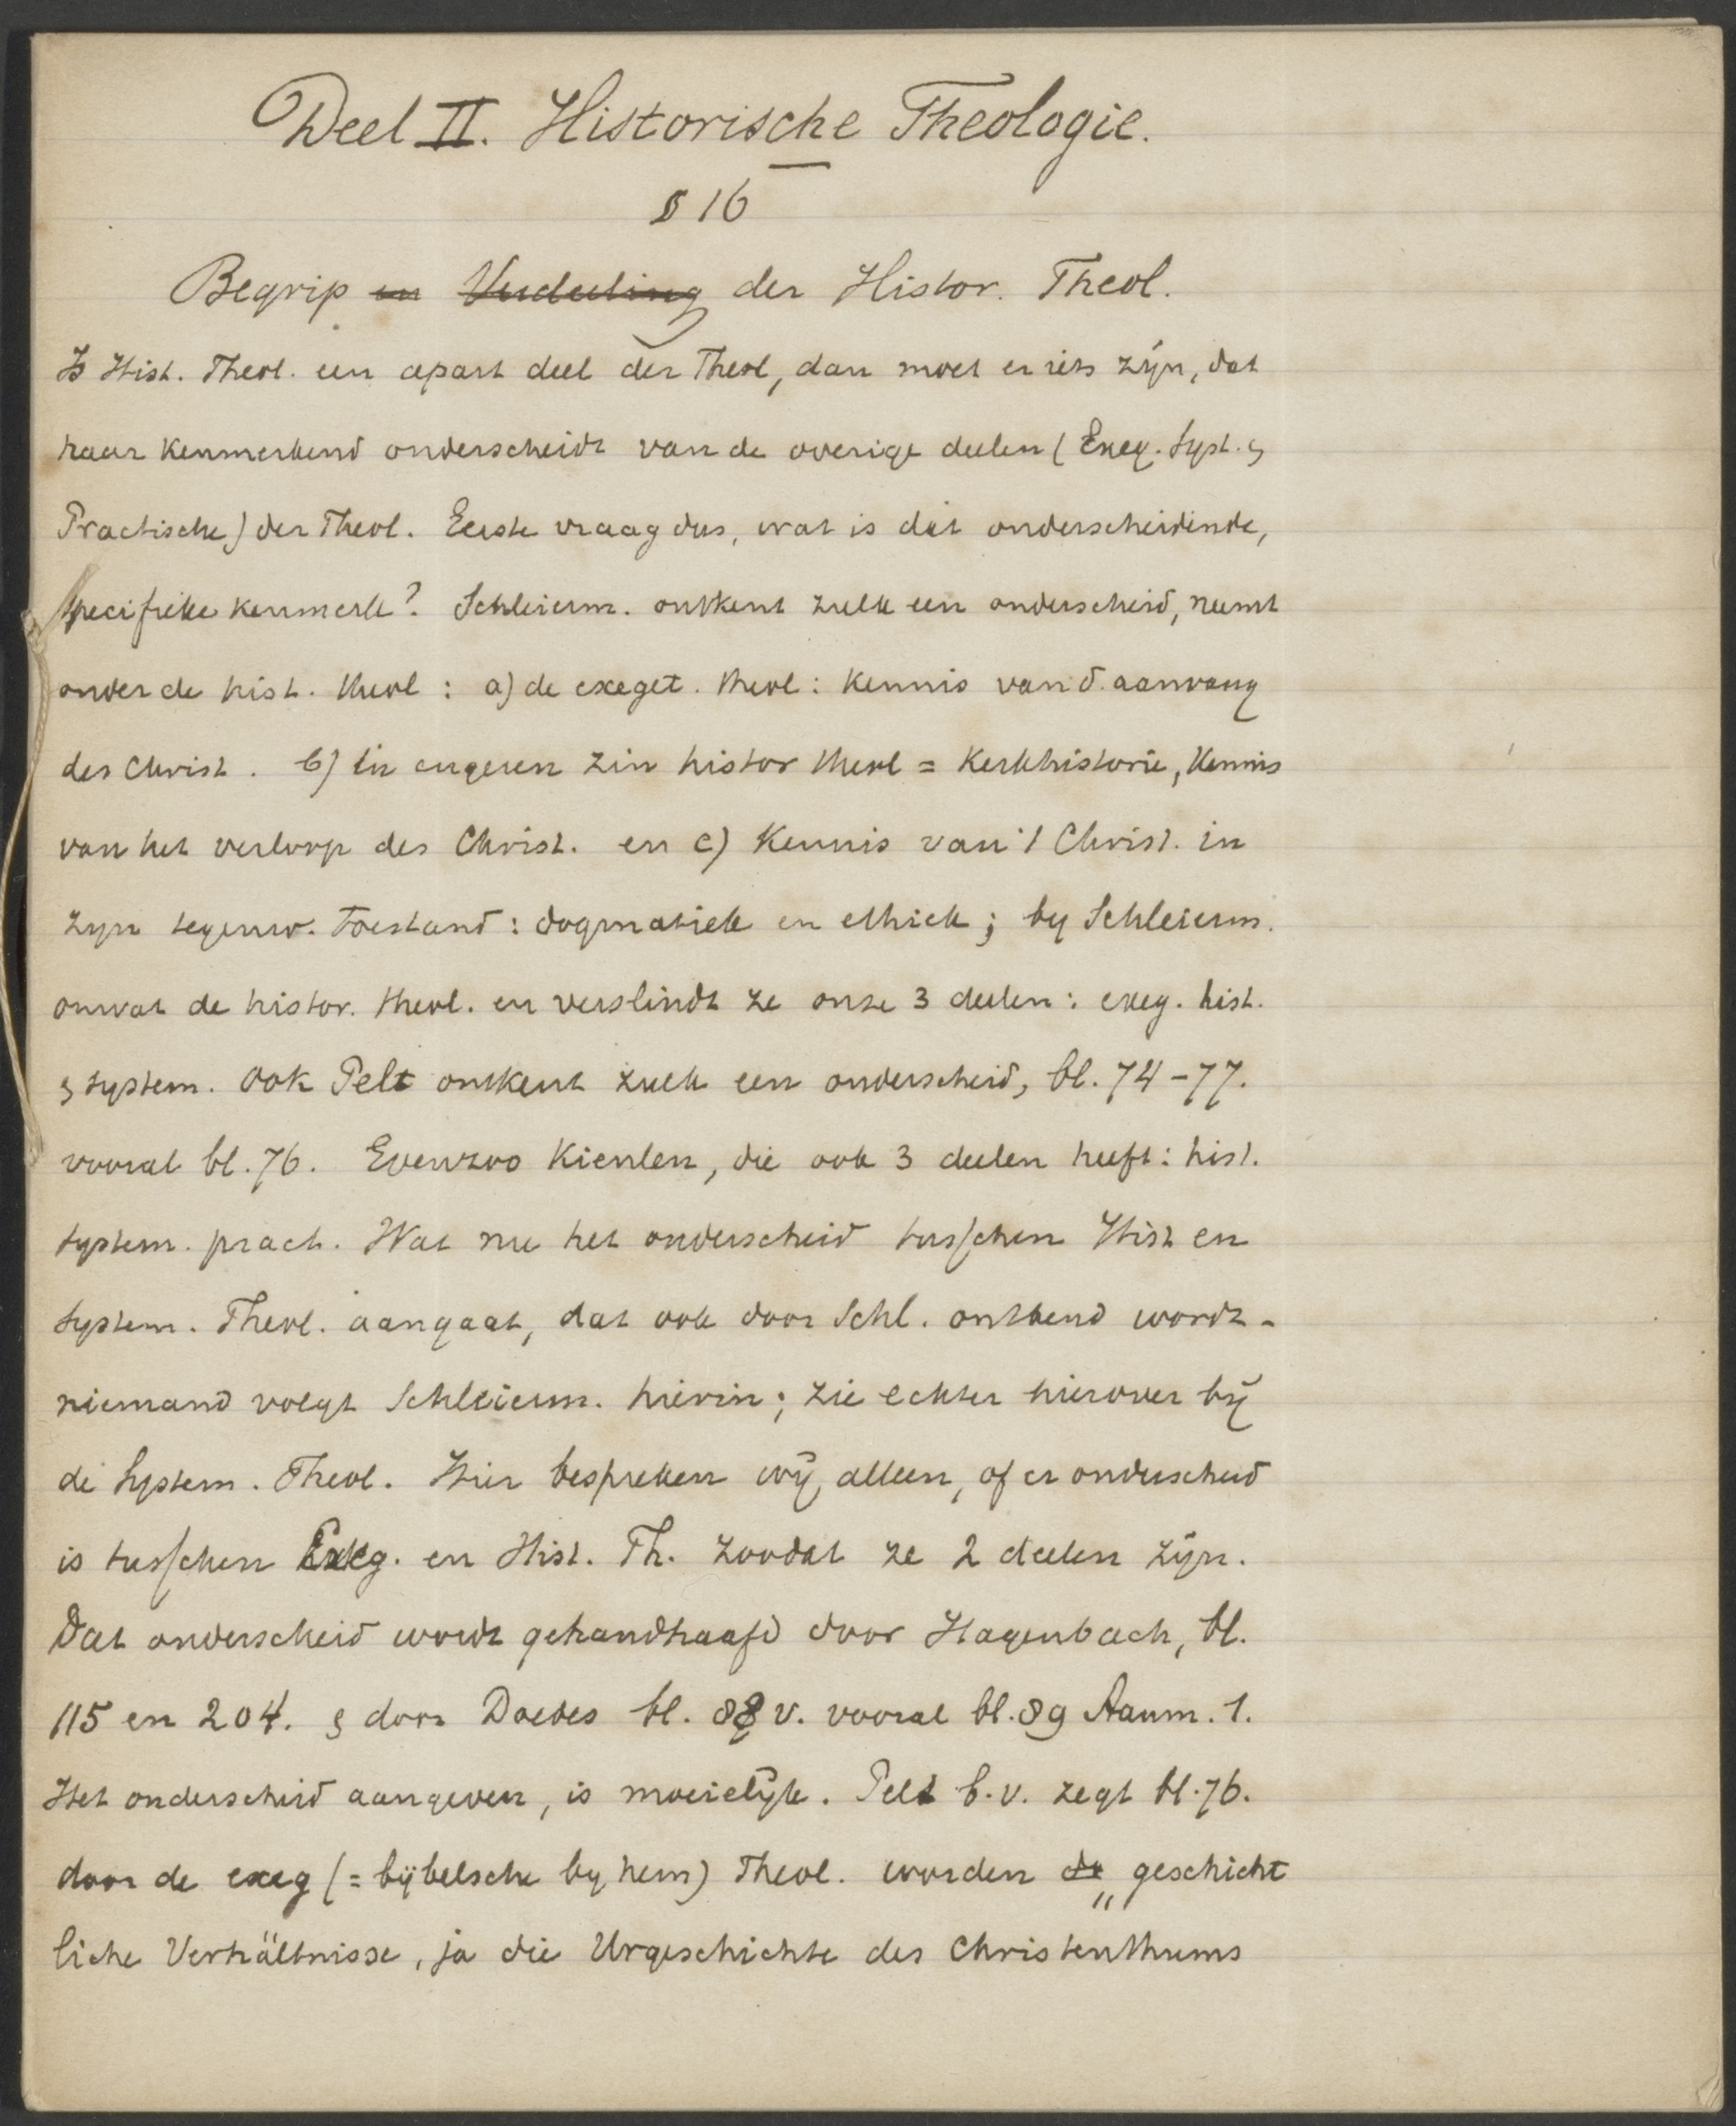 Deel II. Historische Theologie.
§ 16
Begrip en Verdeeling der Histor. Theol.
Is Hist. Theol. een apart deel der Theol, dan moet er iets zijn, dat
haar kenmerkend onderscheidt van de overige deelen (Exeg. Syst. &
Practische) der Theol. Eerste vraag dus, wat is dat onderscheidende,
specifieke kenmerk? Schleierm. ontkent zulk een onderscheid, neemt
onder de hist. theol : a) de exeget. theol: kennis van d. aanvang
des Christ. b) in engeren zin histor theol = kerkhistorie, kennis
van het verloop des Christ. en c) kennis van 't Christ. in
zijn tegenw. toestand: dogmatiek en ethiek; by Schleierm.
omvat de histor. theol. en verslindt ze onze 3 deelen: exeg. hist.
& system. Ook Pelt ontkent zulk een onderscheid, bl. 74-77.
vooral bl. 76. Evenzoo Kienlen, die ook 3 deelen heeft: hist.
system. pract. Wat nu het onderscheid tusschen Hist en
System. Theol. aangaat, dat ook door Schl. ontkend wordt -
niemand volgt Schleierm. hierin; zie echter hierover bij
de System. Theol. Hier bespreken wij alleen, of er onderscheid
is tusschen Exeg. en Hist. Th. zoodat ze 2 deelen zijn.
Dat onderscheid wordt gehandhaafd door Hagenbach, bl.
115 en 204. & door Doedes bl. 88 v. vooral bl. 89 Aanm. 1.
Het onderscheid aangeven, is moeielijk. Pelt b.v. zegt bl. 76.
door de exeg (= bijbelsche by hem) Theol. worden de „geschicht
liche Verhältnisse, ja die Urgeschichte des Christenthums